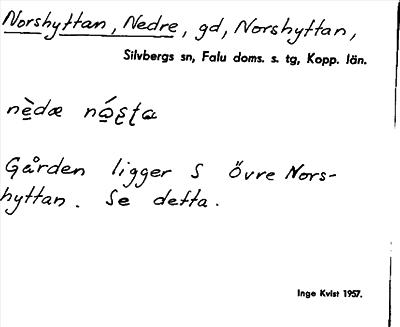 Norshyttan, Nedre, gd, Norshyttan,
Silvbergs sn, Falu doms. s. tg, Kopp. län.
nèdæ
Gården ligger S övre Nors-
hyttan. Se detta.
Inge Kvist 1957.